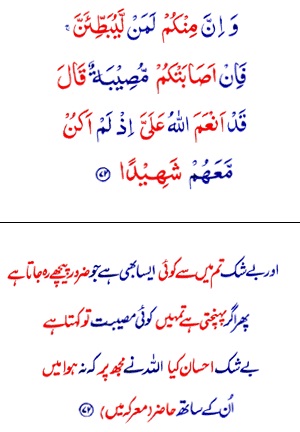 وَ اِنَّ مِنْكُمْ لَمَنْ لَّيُبَطِّئَنَّ ۚ
فَاِنْ اَصَابَتْكُمْ مُّصِيْبَةٌ قَالَ
قَدْ اَنْعَمَ اللّٰهُ عَلَىَّ اِذْ لَمْ اَكُنْ
مَّعَهُمْ شَهِيْدًا ﴿۷۲﴾
اور بے شک تم میں سے کوئی ایسا بھی ہے جو ضرور پیچھے رہ جاتا ہے
پھر اگر پہنچتی ہے تمہیں کوئی مصیبت تو کہتا ہے
بے شک احسان کیا اللہ نے مجھ پر کہ نہ ہوا میں
اُن کے ساتھ حاضر (معرکہ میں) ﴿۷۲﴾